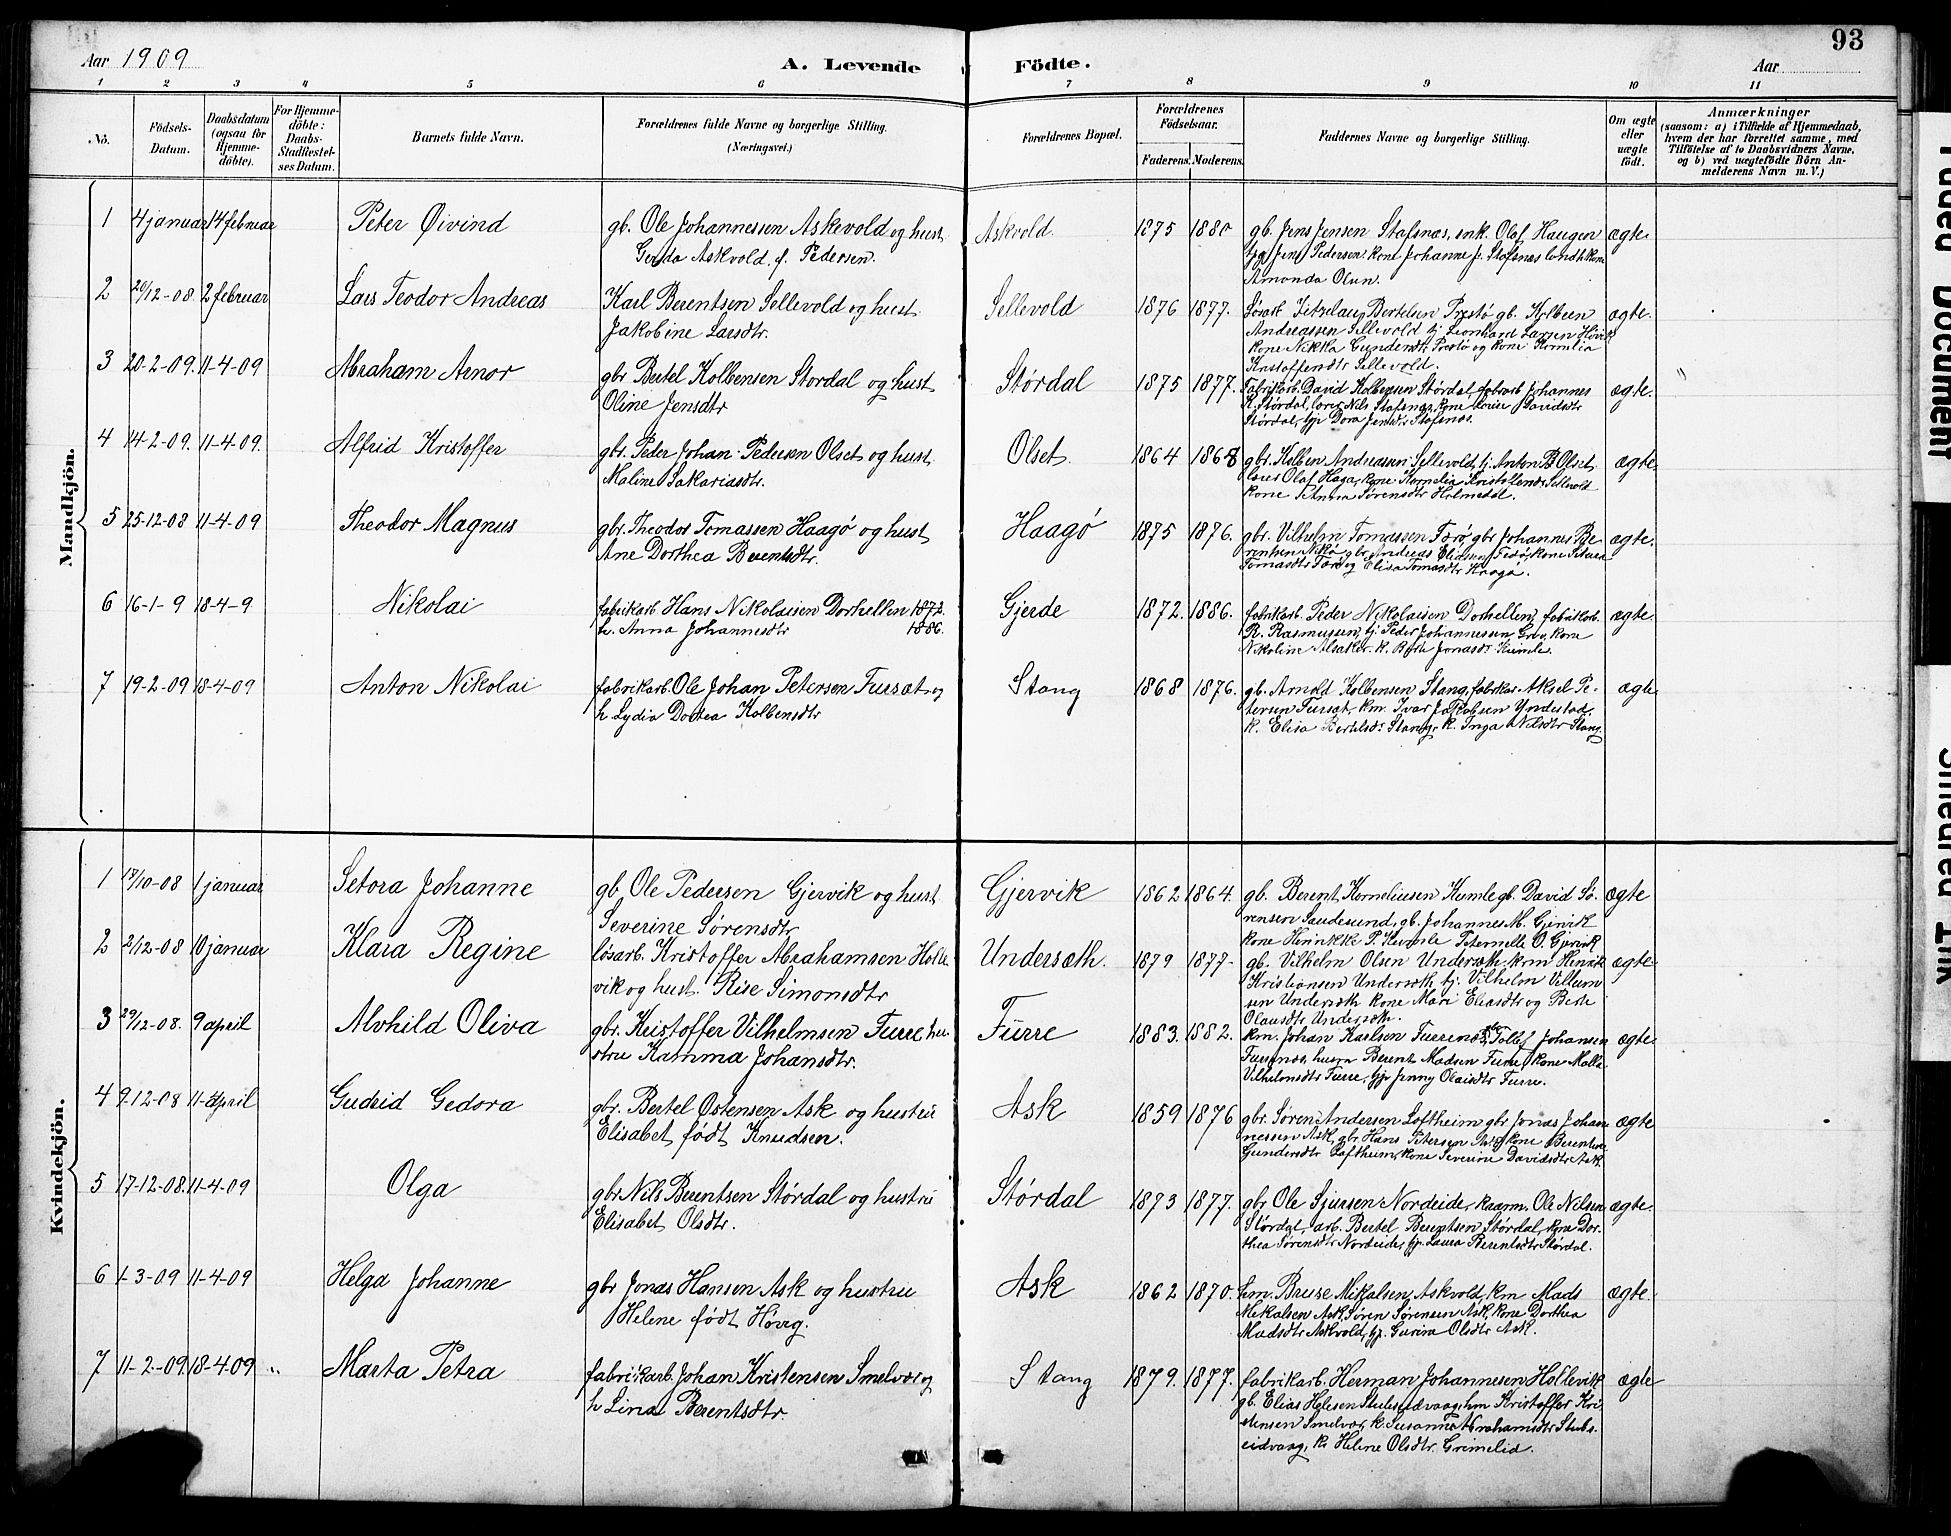 93
Aar 1909
A. Levende Födte.
Aar
1 2 3 4 5 6 7 8 9 10 11
Nö.
Födsels-Datum.
Daabsdatum (ogsaa för Hjemme-döbte).
For Hjemme-döbte: Daabs-Stadfæstel-ses Datum.
Barnets fulde Navn.
Forældrenes fulde Navne og borgerlige Stilling.
(Næringsvei.)
Forældrenes Bopæl.
Forældrenes Födselsaar.
Faderens. Moderens.
Faddernes Navne og borgerlige Stilling.
Om ægte eller uægte födt.
Anmærkninger
(saasom: a) i Tilfælde af Hjemmedaab,
hvem der har forrettet samme, med
Tilföielse af to Daabsvidners Navne,
og b) ved uægtefödte Börn An-
melderens Navn m. V.)
Mandkjön.
1 4 januar 14 februar Peter Øivind gb. Ole Johannessen Askevold og hust.
Gerda Askvold, f. Pedersen.
Askvold. 1875 1880 gb. Jens Jensen Stafsnæs, snk. Olaf Haugen ægte
tjg Jens Pedersen kone Johanne J. Stafsnes landh.kone
Amanda Olsen.
2 20/12-08. 2 februar Lars Teodor Andreas Karl Berentsen Sellevold og hust.
Jakobine Larsdtr.
Sellevold 1876 1877. Bertelsen Prestø gb. Kolbeen ægte.
Andreassen Sellevold tj. Leonhard Larsen Høvik
kone Nikka Gundersdtr Prestø og kone Kornelia
Kristoffersdtr Sellevold.
3 20-2-09. 11-4-09 Abraham Arnor gbr Bertel Kolbensen Stordal og hust
Oline Jensdtr
Størdal 1875 1877. Fabrikarb. David Kolbensen Størdal, fabrarb Johannes ægte.
K. Størdal, lærer Nils Stafsnæs, kone Lovise Davidsdtr
Størdal, gjp Dora Jensdtr Stafsnæs.
4 14-2-09. 11-4-09. Alfrid Kristoffer gbr. Peder Johan Pedersen Olset og hust
Maline Sakariasdtr.
Olset. 1864 1868 gbr. Kolben Andreassen Sellevold, tj. Anton B Olset. ægte.
lærer Olaf Haga, kone Kornelia Kristoffersdr Sellevold
kone Anna Sørensdtr Holmedal.
5 25-12-08 11-4-09 Theodor Magnus gbr. Theodor Tomassen Haagø og hust
Ane Dorthea Berentsdtr.
Haagø 1875 1876. gbr. Vilhelm Tomassen Færø, gbr Johannes Be ægte.
rentsen Nikø gbr. Andreas Eliassen Færø, kone Peternn
Tomasdtr Færø og Elisa Tomasdtr Haagø.
6 16-1-9 18-4-9 Nikolai fabrikarb Hans Nikolaisen Dorhellen 1872.
h. Anna Johannesdtr 1886.
Gjerde 1872. 1886. fabrikarb. Peder Nikolaisen Dorhellen, fabrikarb. ægte.
R. Rasmussen, tj. Peder Johannessen Grov, kone
Nikoline Alsaker. k. Berte Jonasdr Kumle.
7 19-2-09 18-4-09 Anton Nikolai fabrikarb. Ole Johan Petersen Fursæt og
h Lydia Dortea Kolbensdtr
Stang 1868 1876. gb. Arnold Kolbensen Stang, fabrikar Aksel Pe- ægte
tersen Fursæt, km. Ivar Jakobsen Yndestad,
k. Elisa Bertelsdr Stang, k. Inga Nilsdtr Stang.
Kvindekjön.
1 17/10-08 1 januar Setora Johanne gb. Ole Pedersen Gjervik og hust
Severine Sørensdtr
Gjervik 1862 1864. gb. Berent Korneliusen Kumle gb. David Sø- ægte
rensen Sandesund, gb. Johannes M. Gjervik
kone Henrikke P. Kumle Peternelle O. Gjervik
2 2/12-08 10 januar Klara Regine løsarb. Kristoffer Abrahamsen Holle
vik og hust. Rise Simonsdtr
Undersæth. 1879 1877- gb. Vilhelm Olsen Undersæth. krm Henrik ægte
Kristiansen Undersæth tj. Vilhelm Villum
sen Undersæth kone Mari Eliasdtr og Berte
Olausdtr Undersæth.
3 29/12-08. 9 april Alvhild Oliva gbr. Kristoffer Vilhelmsen Furre hu-
stru Kamma Johansdtr.
Furre 1883. 1882. km. Johan Karlsen Furrenæs, Tollef Johansen ægte
Furrenæs, husm Berent Madsen Furre, kone Malla
Vilhelmsdtr Furre, gjp Jenny Olaisdtr Furre.
4 9-12-08 11-April Gudrid Gedora gbr. Bertel Østensen Ask og hustru
Elisabet født Knudsen.
Ask 1859 1876 gbr. Søren Andersen Loftheim gbr Jonas Johan ægte
nessen Ask, gbr. Hans Petersen kone Berentine
Gundersdtr Loftheim, kone Severine Davidsdtr Ask.
5 17-12-08. 11-4-09 Olga gbr Nils Berentsen Størdal og hustru
Elisabet Olsdtr.
Størdal 1873 1877. gbr Ole Sjursen Nordeide, kaarm. Ole Nilsen ægte.
Størdal, arb. Bertel Berentsen Størdal, kone Dor-
thea Sørensdtr Nordeide, gjp. Laura Berentsdtr Størdal.
6 1-3-09 11-4-09 Helga Johanne gbr Jonas Hansen Ask og hustru
Helene født Høveg.
Ask 1862 1870. hm. Bruse Mikalsen Askvold, km Mads ægte.
Mikalsen Ask, Søren Sørensen Ask, kone Dorthea
Madsdtr Askvold, gp. Gurina Olsdtr Ask.
7 11-2-09. 18-4-09 " Marta Petra fabrikarb. Johan Kristensen Smelvær og
h Lina Berentsdtr.
Stang 1879. 1877. fabrikarb. Herman Johannesen Hollevik ægte
gb. Elias Helgesen Stubseidvaag, hm Kristoffer Kri-
stensen Smelvær, k. Susanne Abrahamsdtr Stubs-
eidvaag, k. Helene Olsdtr. Grimelid.
Faded Document
Smeared Ink